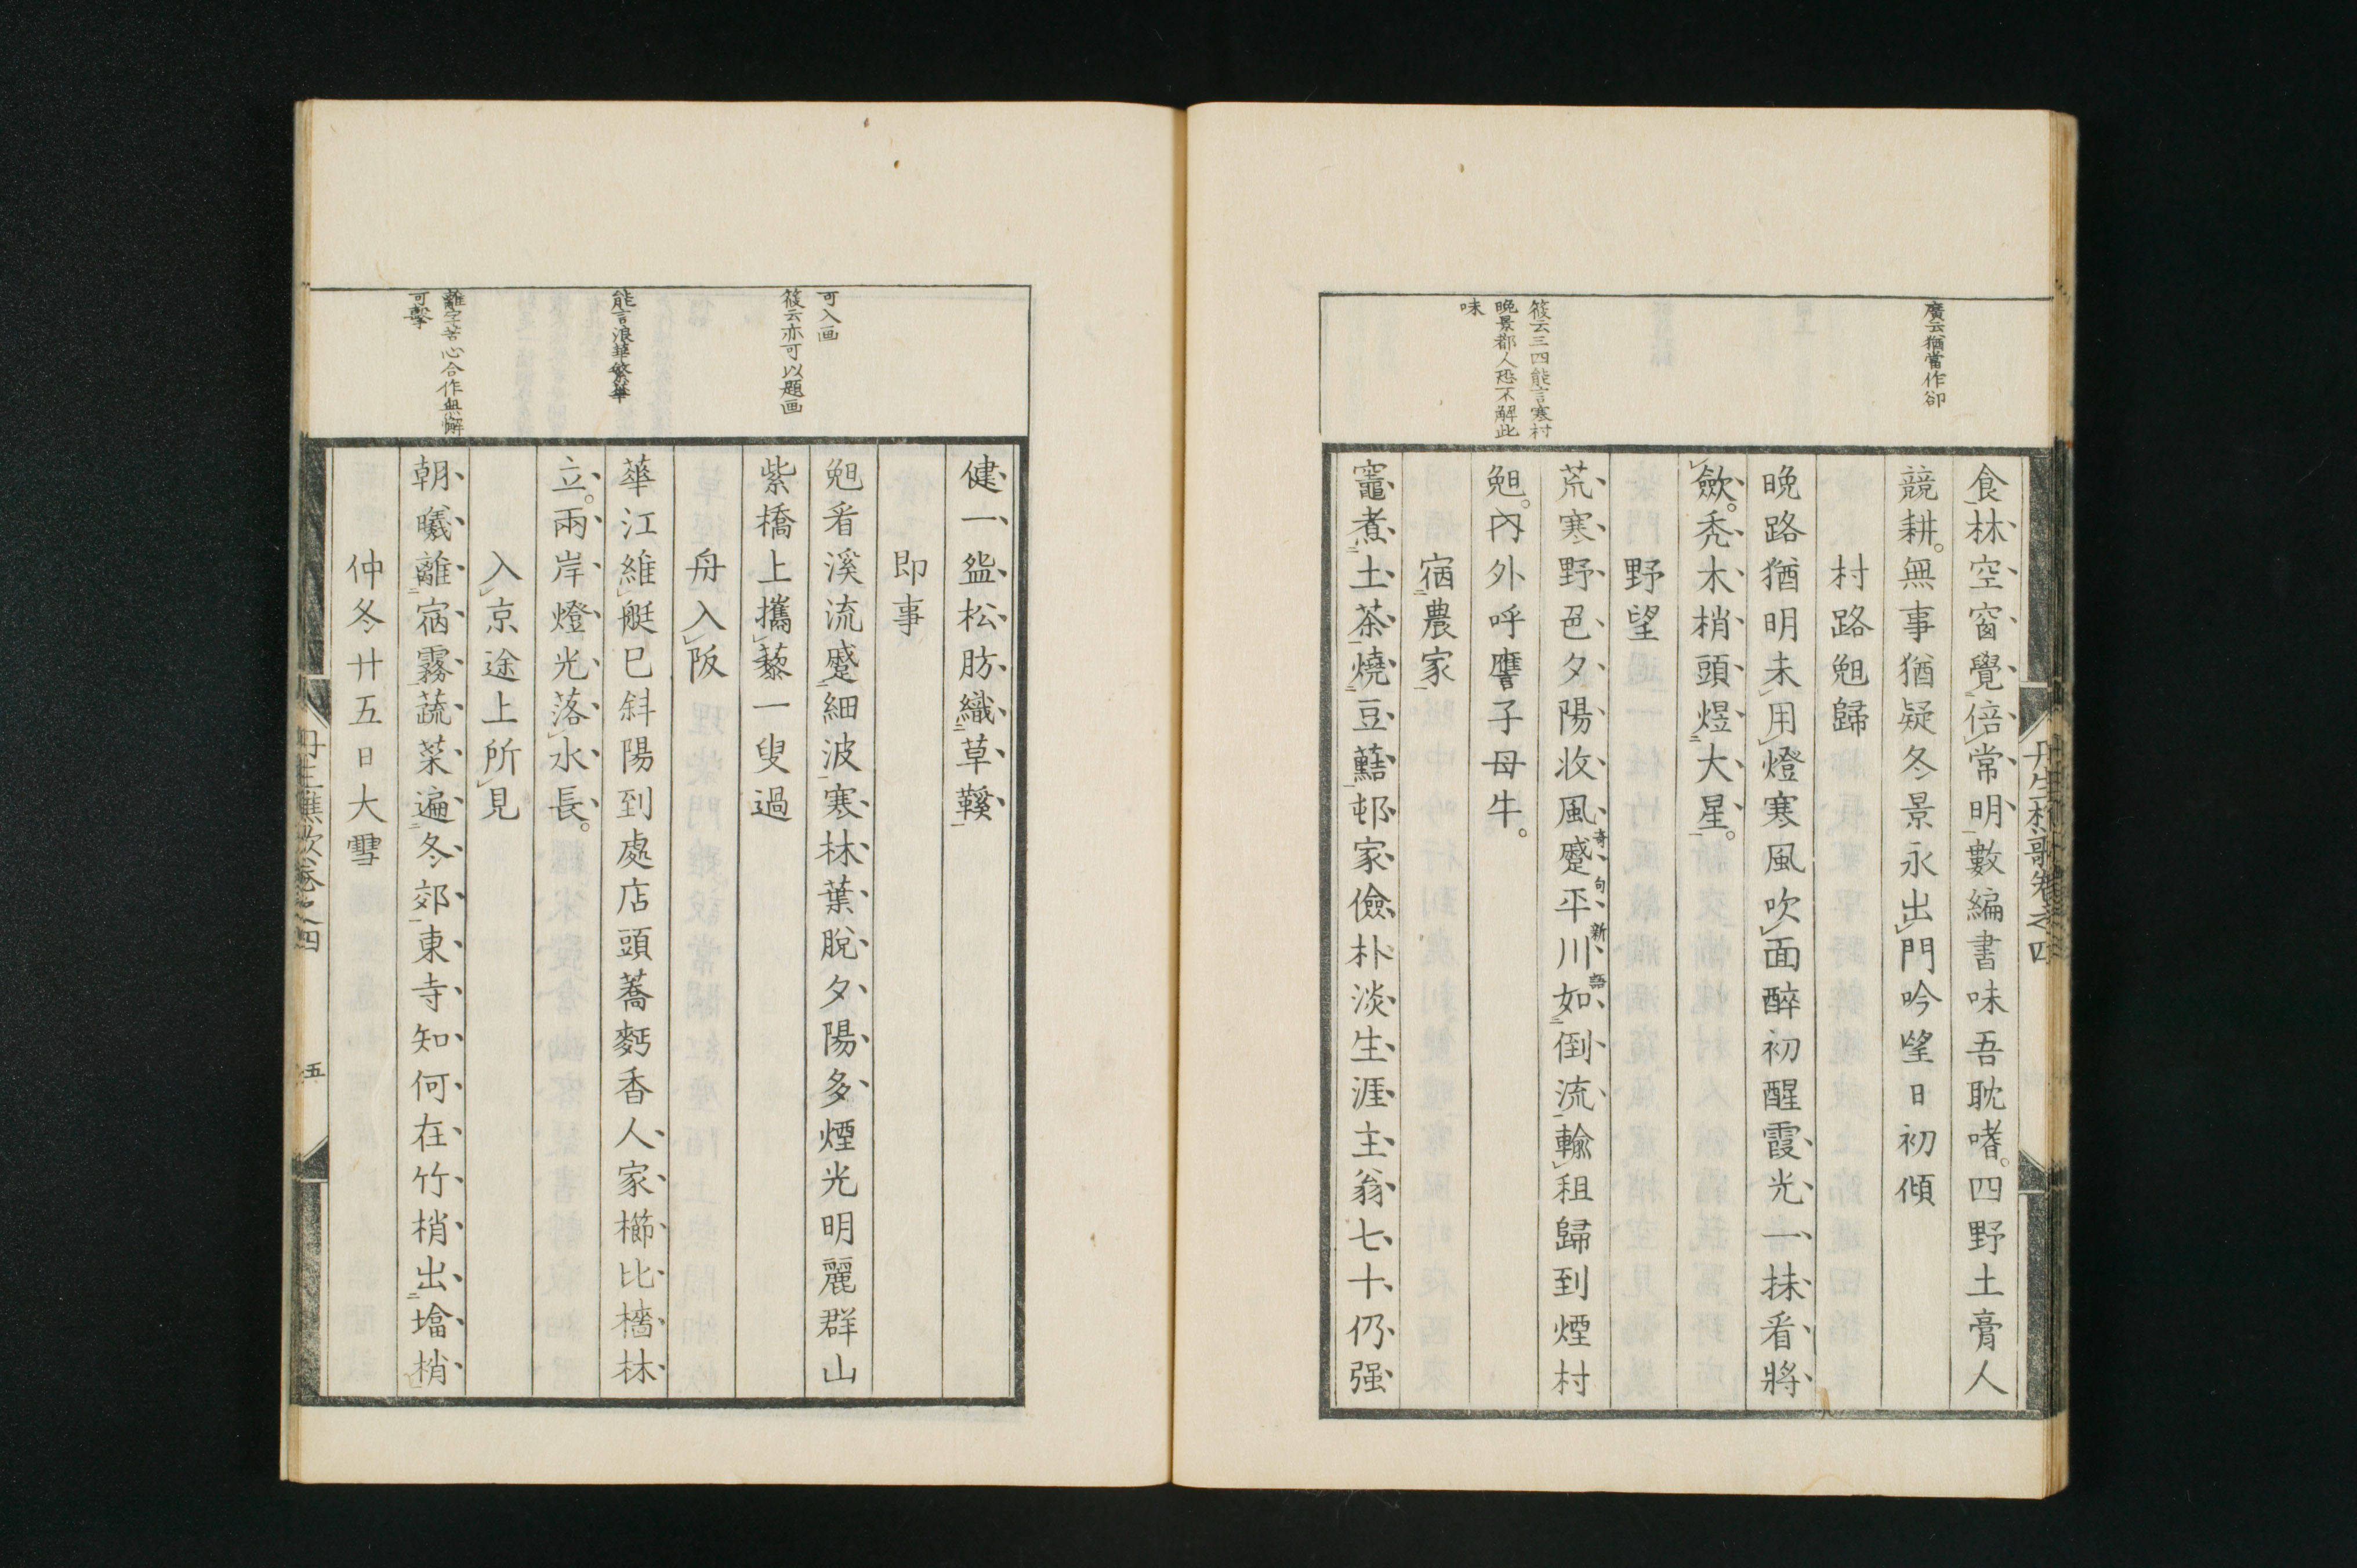 廣云猶當作卻
筱云三四能言寒村
晚景都人恐不解此
味
食林空窗覺倍常明數編書味吾耽嗜。四野土膏人
競耕。無事猶疑冬景永出門吟望日初傾
村路晩歸
晚路猶明未用燈寒風吹面醉初醒霞光一抹看將
歛。禿木梢頭煜大星。
野望
荒寒野色夕陽收風蹙平川如倒流輸租歸到煙村
晩。內外呼譍子母牛。
奇句新語
宿農家
竈煮土茶燒豆䕸邨家儉朴淡生涯主翁七十仍强
丹生樵歌卷之四
可入画
筱云亦可以題画
能言浪華繁華
離字苦心合作無懈
可擊
健一盌松肪織草鞵
即事
晩看溪流蹙細波寒林葉脫夕陽多煙光明麗群山
紫橋上攜藜一叟過
舟入阪
華江維艇已斜陽到處店頭蕎麪香人家櫛比檣林
立。兩岸燈光落水長。
入京途上所見
朝曦離宿霧蔬菜遍冬郊東寺知何在竹梢出墖梢
仲冬廿五日大雪
丹生樵歌卷之四
五